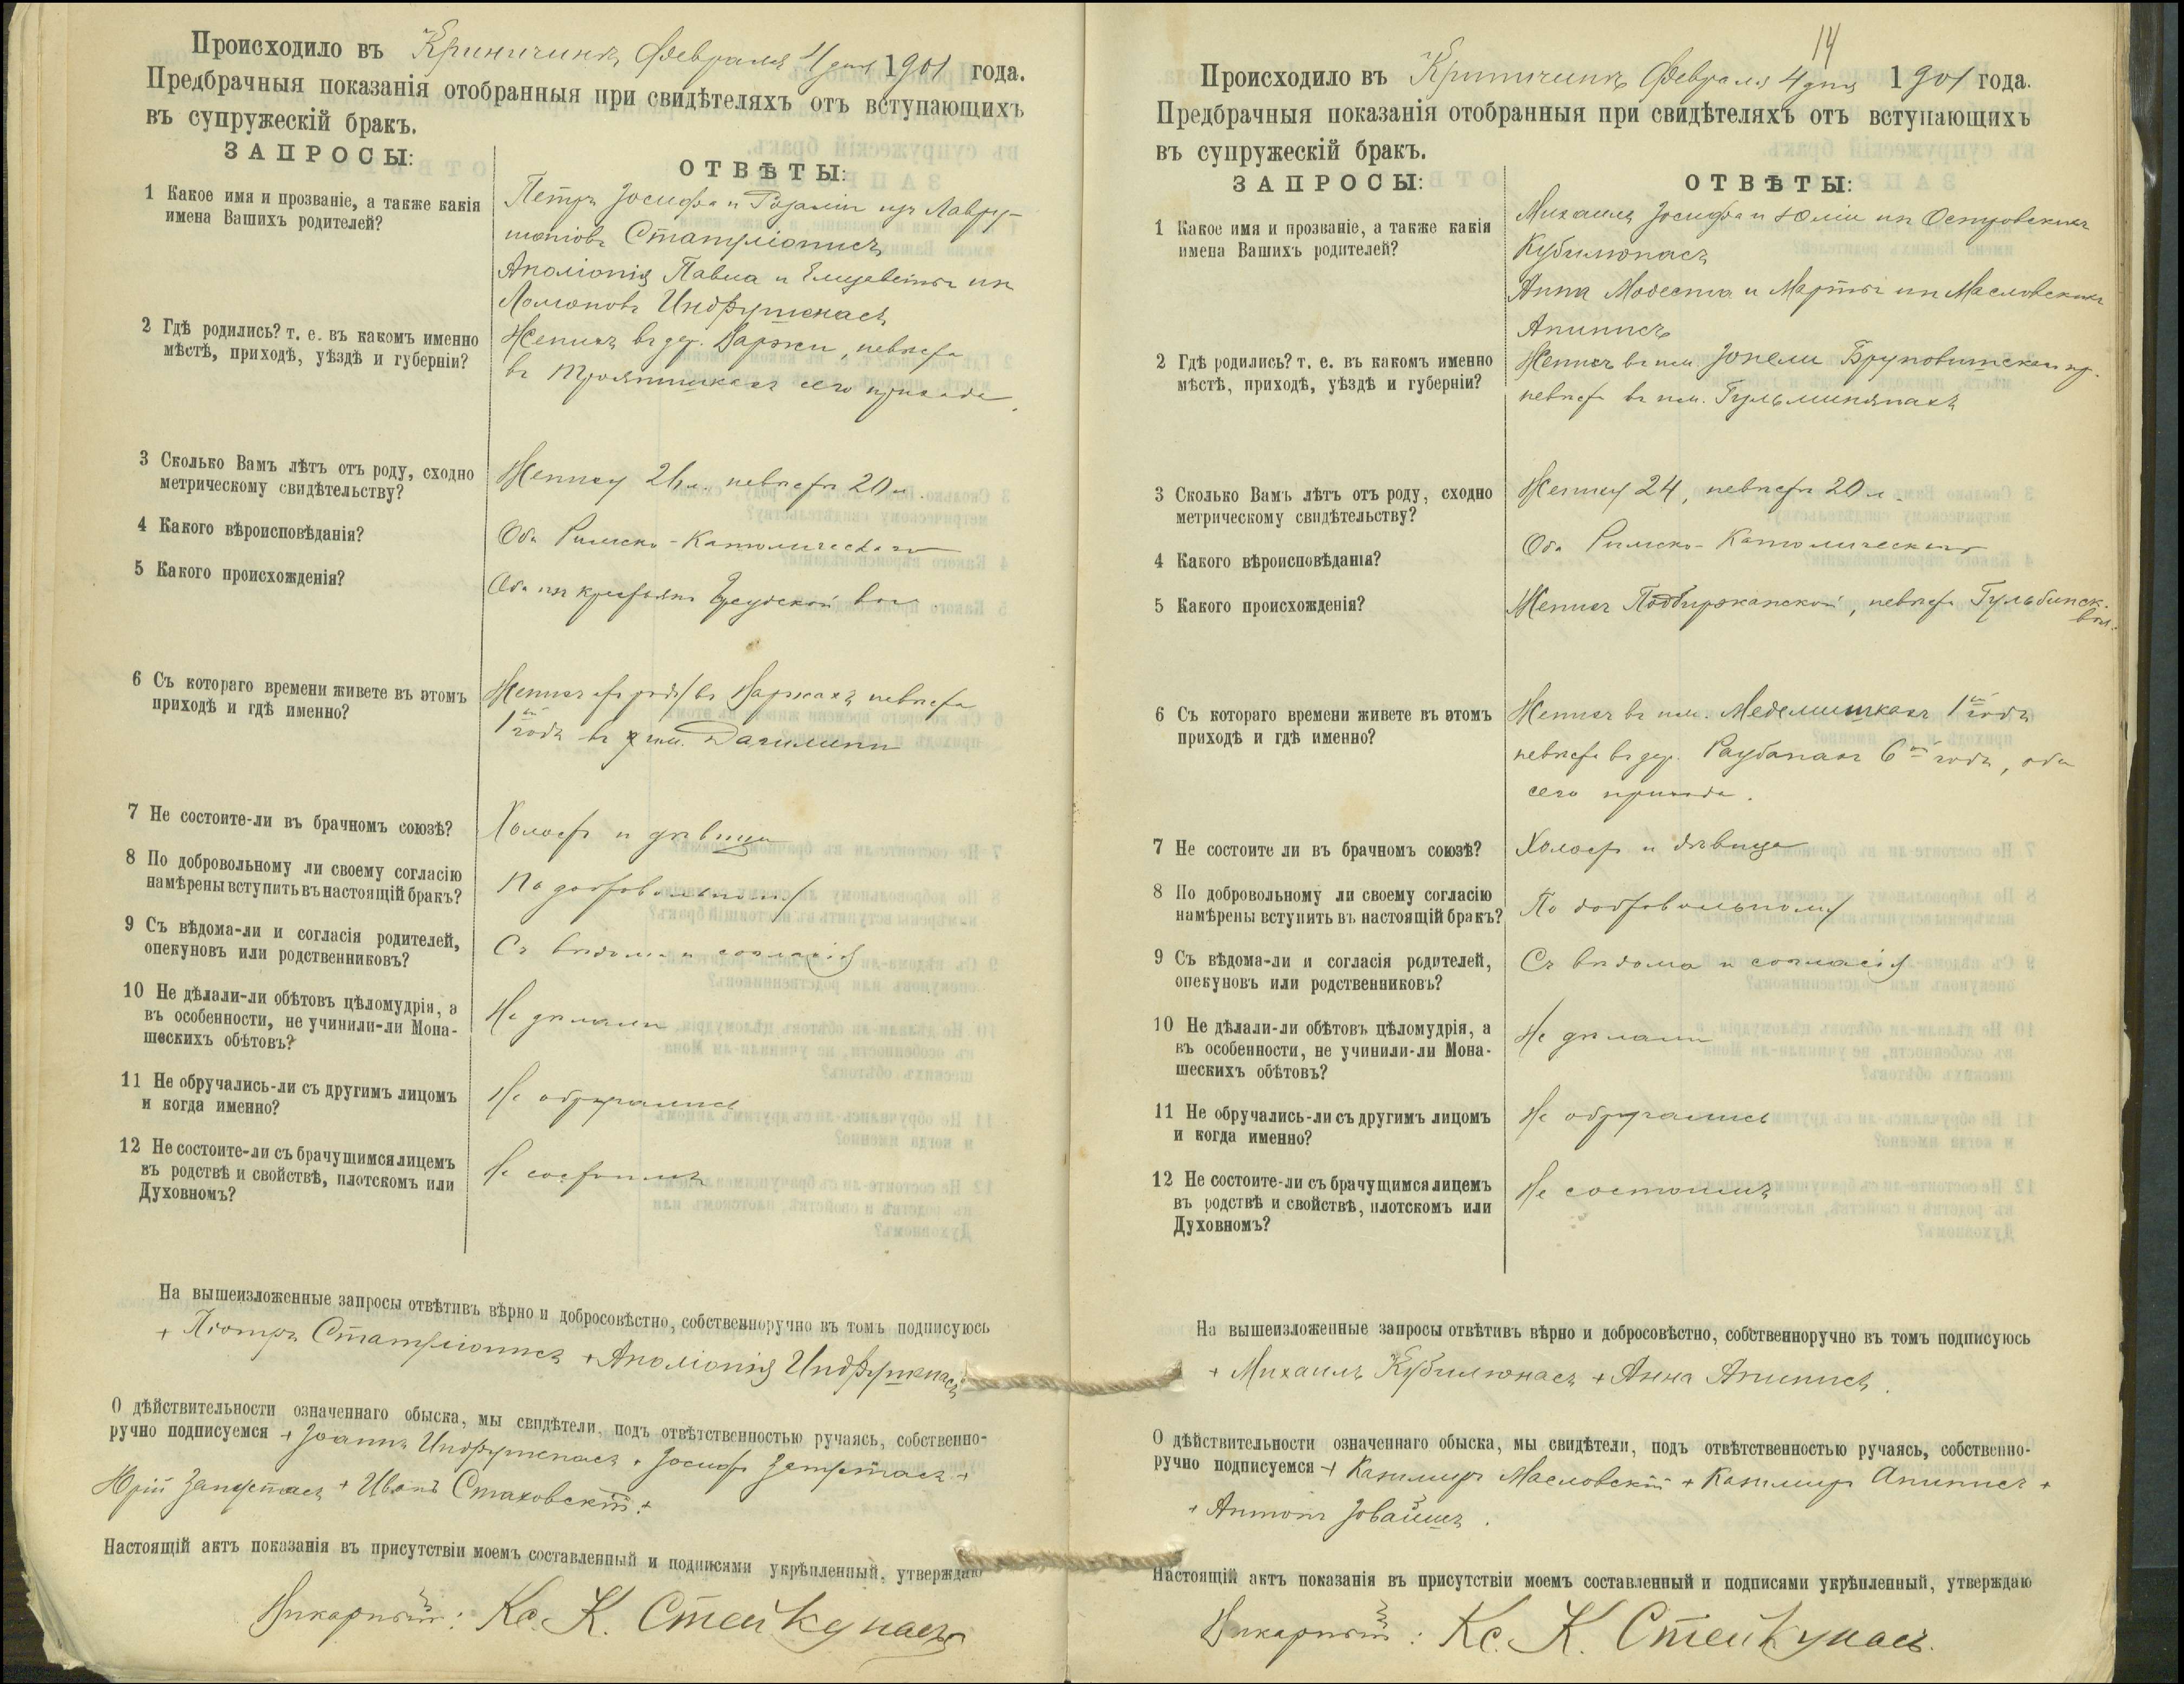 Происходило въ Криничинѣ Февраля 4 дня 1901 года.
Предбрачныя показанія отобранныя при свидѣтеляхъ отъ вступающихъ
въ супружескій бракъ.
ЗАПРОСЫ:
ОТВѢТЫ:
1 Какое имя и прозваніе, а также какія
имена Вашихъ родителей?
Петръ Іосифа и Розаліи изъ
Аполіонія Павла и Елизаветы изъ
2 Гдѣ родились? т. е. въ какомъ именно
мѣстѣ, приходѣ, уѣздѣ и губерніи?
Женихъ въ дер. Варжи, невѣста
въ сего прихода.
3 Сколько Вамъ лѣтъ отъ роду, сходно
метрическому свидѣтельству?
Жениху л. невѣста 20 л.
4 Какого вѣроисповѣданія?
Оба Римско-Католическаго
5 Какого происхожденія?
Оба изъ крестьянъ вол.
6 Съ котораго времени живете въ этомъ
приходѣ и гдѣ именно?
Женихъ въ Варжахъ невѣста
1ый годъ въ
7 Не состоите-ли въ брачномъ союзѣ?
Холостъ и дѣвица
8 По добровольному ли своему согласію
намѣрены вступить въ настоящій бракъ?
По добровольному
9 Съ вѣдома-ли и согласія родителей,
опекуновъ или родственниковъ?
Съ вѣдома и согласія
10 Не дѣлали-ли обѣтовъ цѣломудрія, а
въ особенности, не учинили-ли Мона-
шескихъ обѣтовъ?
Не дѣлали
11 Не обручались-ли съ другимъ лицомъ
и когда именно?
Не обручались
12 Не состоите-ли съ брачущимся лицемъ
въ родствѣ и свойствѣ, плотскомъ или
Духовномъ?
Не состоимъ
На вышеизложенные запросы отвѣтивъ вѣрно и добросовѣстно, собственноручно въ томъ подписуюсь
+ Піотръ + Аполіонія
О дѣйствительности означеннаго обыска, мы свидѣтели, подъ отвѣтственностью ручаясь, собственно-
ручно подписуемся + Іоаннъ + Іосифъ +
Юрій + Иванъ Стаховскій +
Настоящій актъ показанія въ присутствіи моемъ составленный и подписями укрѣпленный, утверждаю
Викарный: Кс. К. Стейкунасъ
14
Происходило въ Криничинѣ Февраля 4 дня 1901 года.
Предбрачныя показанія отобранныя при свидѣтеляхъ отъ вступающихъ
въ супружескій бракъ.
ЗАПРОСЫ:
ОТВѢТЫ:
1 Какое имя и прозваніе, а также какія
имена Вашихъ родителей?
Михаилъ Іосифа и Юліи изъ Островскихъ
Кубилюнасъ
Анна Модеста и Марты изъ Масловскихъ
Анипись
2 Гдѣ родились? т. е. въ какомъ именно
мѣстѣ, приходѣ, уѣздѣ и губерніи?
Женихъ въ им. пр.
невѣста въ им.
3 Сколько Вамъ лѣтъ отъ роду, сходно
метрическому свидѣтельству?
Жениху 24, невѣста 20 л.
4 Какого вѣроисповѣданія?
Оба Римско-Католическаго
5 Какого происхожденія?
Женихъ Подбиржанской, невѣста Гульбинск.
вол.
6 Съ котораго времени живете въ этомъ
приходѣ и гдѣ именно?
Женихъ въ им. 1ый годъ
невѣста въ дер. 6ой годъ, оба
сего прихода.
7 Не состоите ли въ брачномъ союзѣ?
Холостъ и дѣвица
8 По добровольному ли своему согласію
намѣрены вступить въ настоящій бракъ?
По добровольному
9 Съ вѣдома-ли и согласія родителей,
опекуновъ или родственниковъ?
Съ вѣдома и согласія
10 Не дѣлали-ли обѣтовъ цѣломудрія, а
въ особенности, не учинили-ли Мона-
шескихъ обѣтовъ?
Не дѣлали
11 Не обручались-ли съ другимъ лицомъ
и когда именно?
Не обручались
12 Не состоите-ли съ брачущимся лицемъ
въ родствѣ и свойствѣ, плотскомъ или
Духовномъ?
Не состоимъ
На вышеизложенные запросы отвѣтивъ вѣрно и добросовѣстно, собственноручно въ томъ подписуюсь
+ Михаилъ Кубилюнасъ + Анна Анипись.
О дѣйствительности означеннаго обыска, мы свидѣтели, подъ отвѣтственностью ручаясь, собственно-
ручно подписуемся + Казимиръ Масловскій + Казимиръ Анипись +
+ Антонъ
Настоящій актъ показанія въ присутствіи моемъ составленный и подписями укрѣпленный, утверждаю
Викарный: Кс. К. Стейкунасъ.